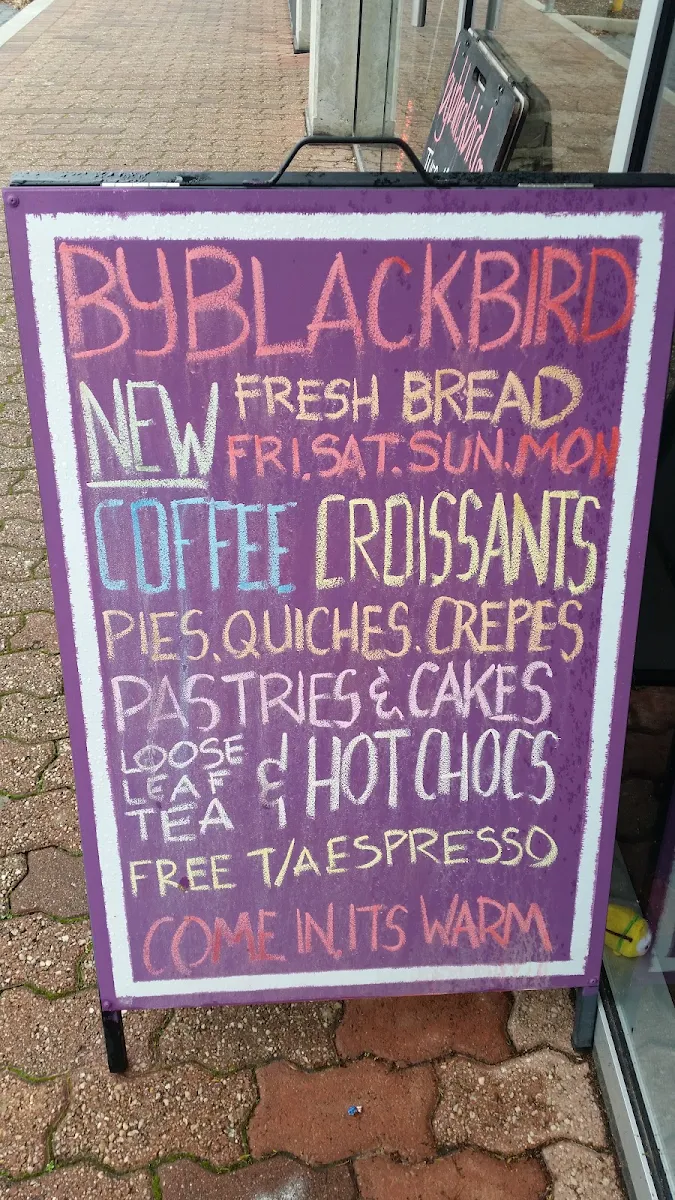 byblackbird
BYBLACKBIRD
NEW FRESH BREAD
FRI.SAT.SUN.MON
COFFEE CROISSANTS
PIES.QUICHES.CREPES
PASTRIES & CAKES
LOOSE
LEAF
TEA
& HOT CHOCS
FREE T/A ESPRESSO
COME IN, ITS WARM